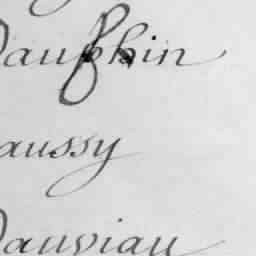 Dauphin
aussy
Dauviau